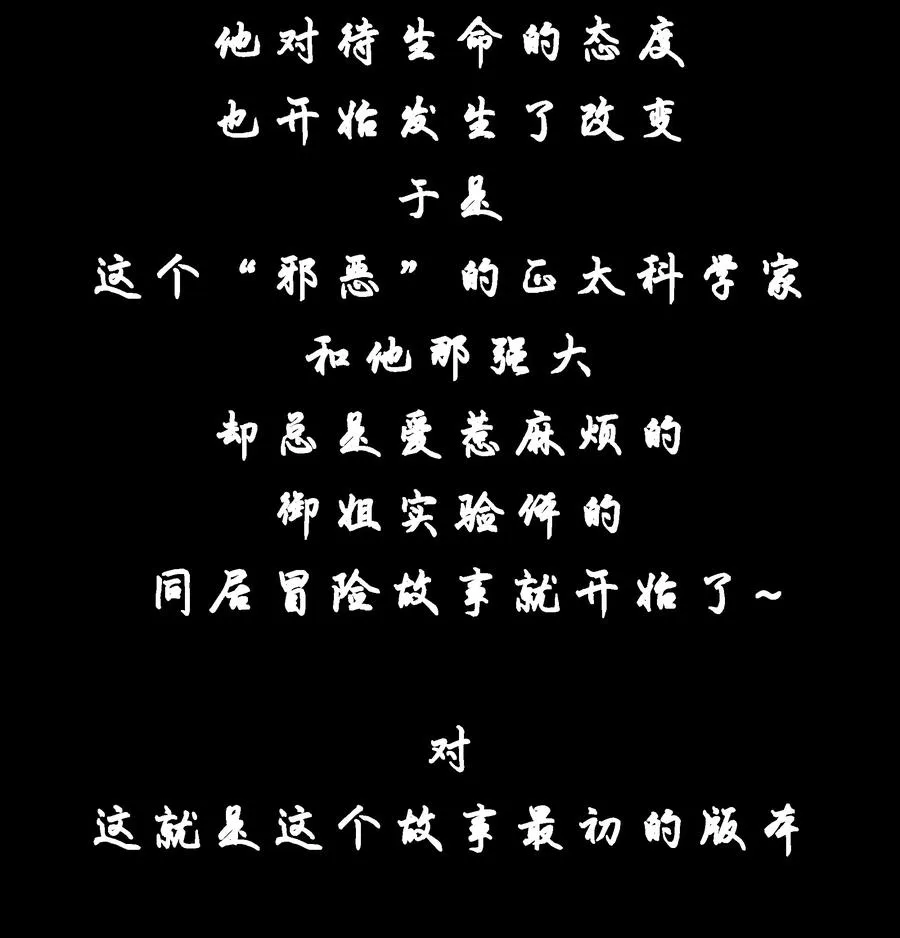 他对待生命的态度
也开始发生了改变
于是
这个“邪恶”的正太科学家
和他那强大
却总是爱惹麻烦的
御姐实验体的
同居冒险故事就开始了~
对
这就是这个故事最初的版本